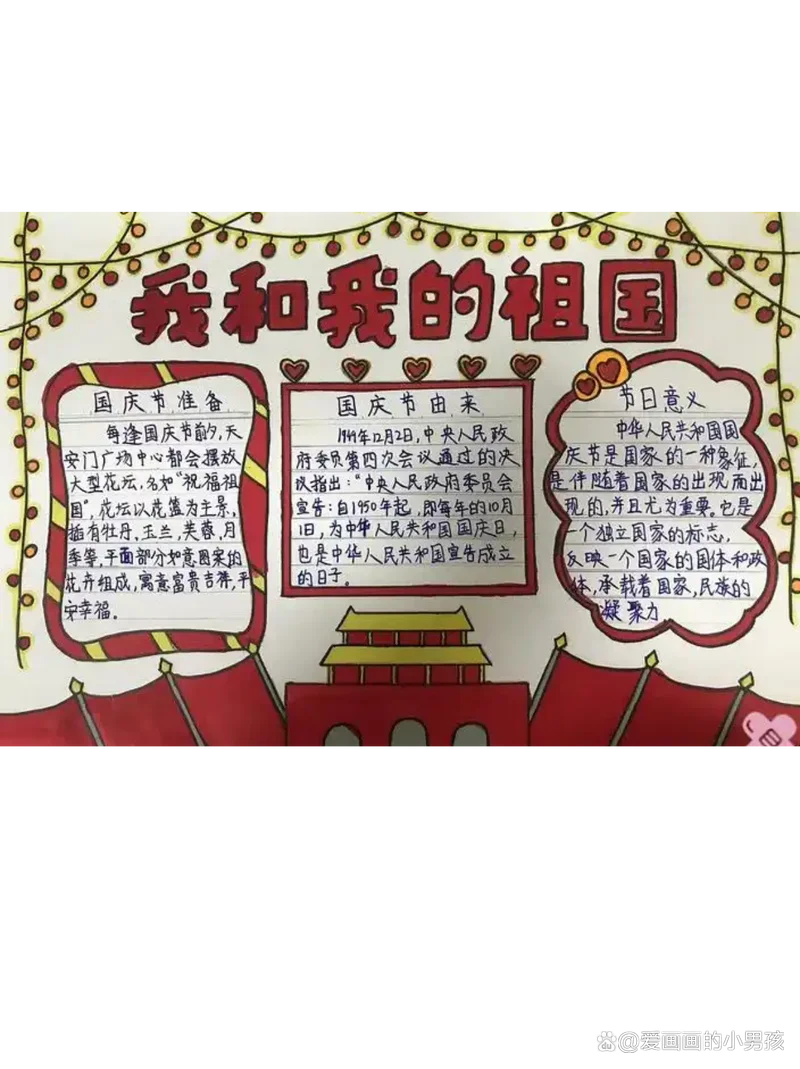 我和我的祖国
国庆节准备
每逢国庆节前夕,天
安门广场中心都会摆放
大型花坛,名如“祝福祖
国”,花坛以花篮为主景,
插有牡丹,玉兰,芙蓉,月
季等,平面部分如意图案的
花卉组成,寓意富贵吉祥,平
安幸福。
国庆节由来
1949年12月2日,中央人民政
府委员第四次会议通过的决
议指出:“中央人民政府委员会
宣告:自1950年起,即每年的10月
1日,为中华人民共和国国庆日,
也是中华人民共和国宣告成立
的日子。
节日意义
中华人民共和国国
庆节是国家的一种象征,
是伴随着国家的出现而出
现的,并且尤为重要。它是
一个独立国家的标志,
反映一个国家的国体和政
体,承载着国家,民族的
凝聚力
@爱画画的小男孩